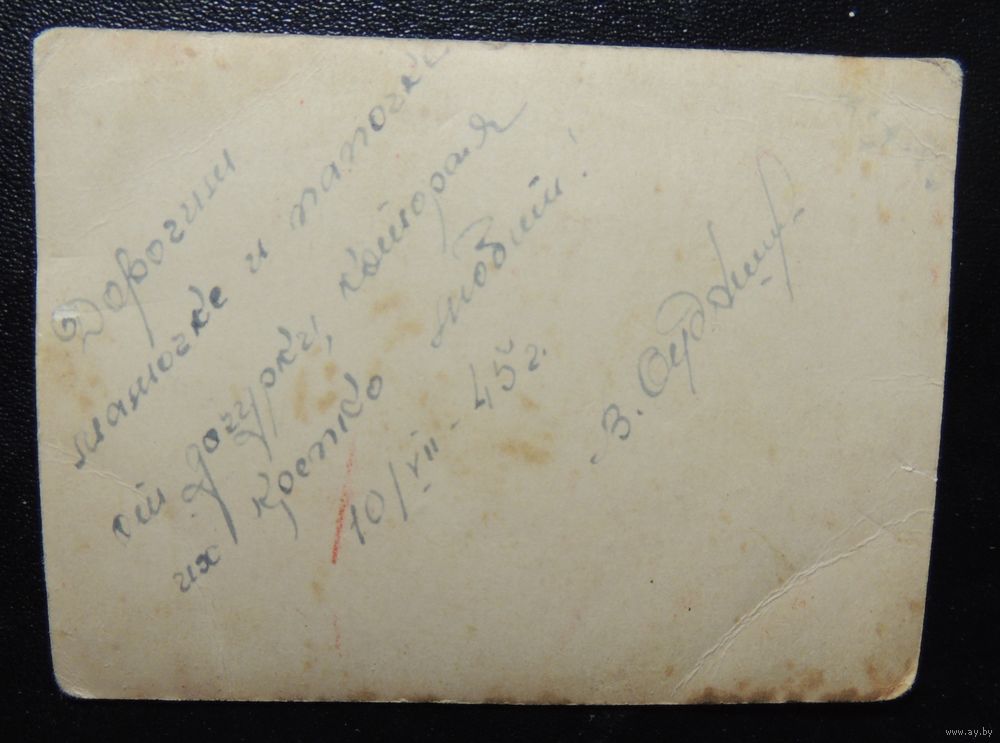 Дорогим
мамочке и папочке
от дочурки, которая
их крепко любит!
10/VII-45 г.
З.
www.ay.by